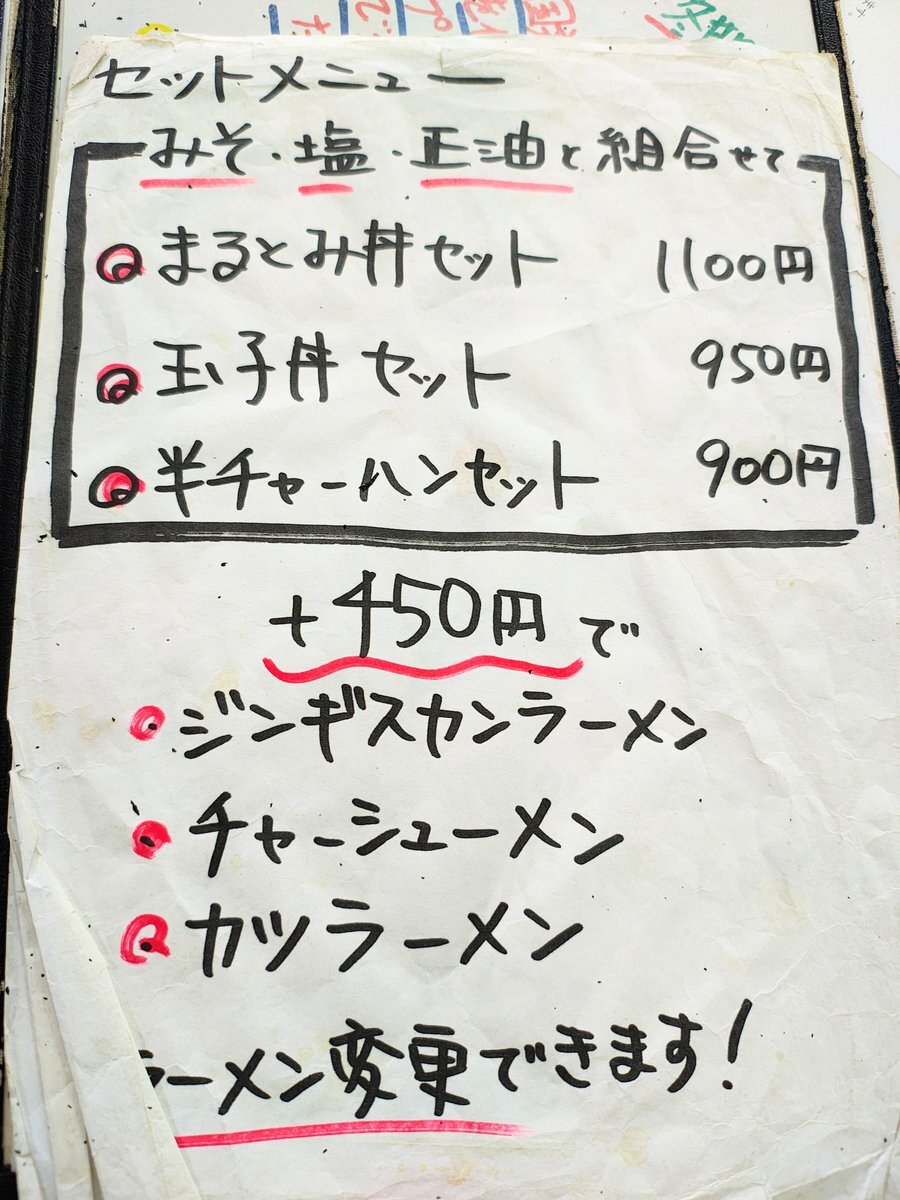 セットメニュー
みそ・塩・正油と組合せて
まるとみ丼セット 1100円
玉子丼セット 950円
半チャーハンセット 900円
+450円で
ジンギスカンラーメン
チャーシューメン
カツラーメン
ラーメン変更できます!